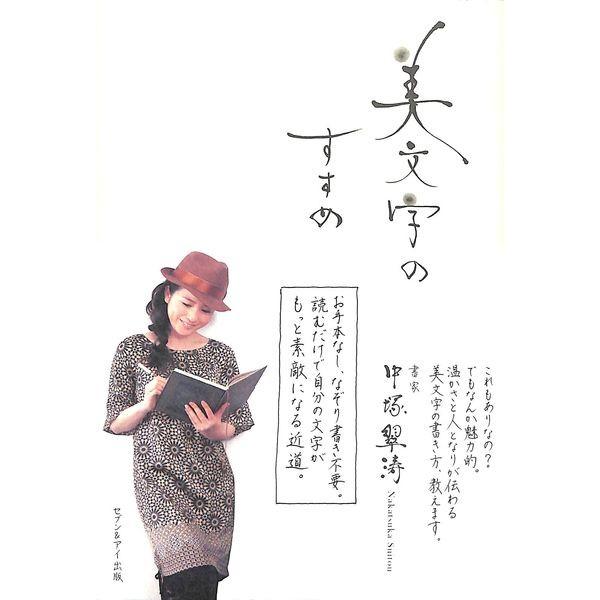 美文字の
すすめ
これもありなの?
でもなんか魅力的。
温かさと人となりが伝わる
美文字の書き方、教えます。
書家
中塚翠涛
Nakatsuka Suitou
お手本なし、なぞり書き不要。
読むだけで自分の文字が
もっと素敵になる近道。
セブン&アイ出版